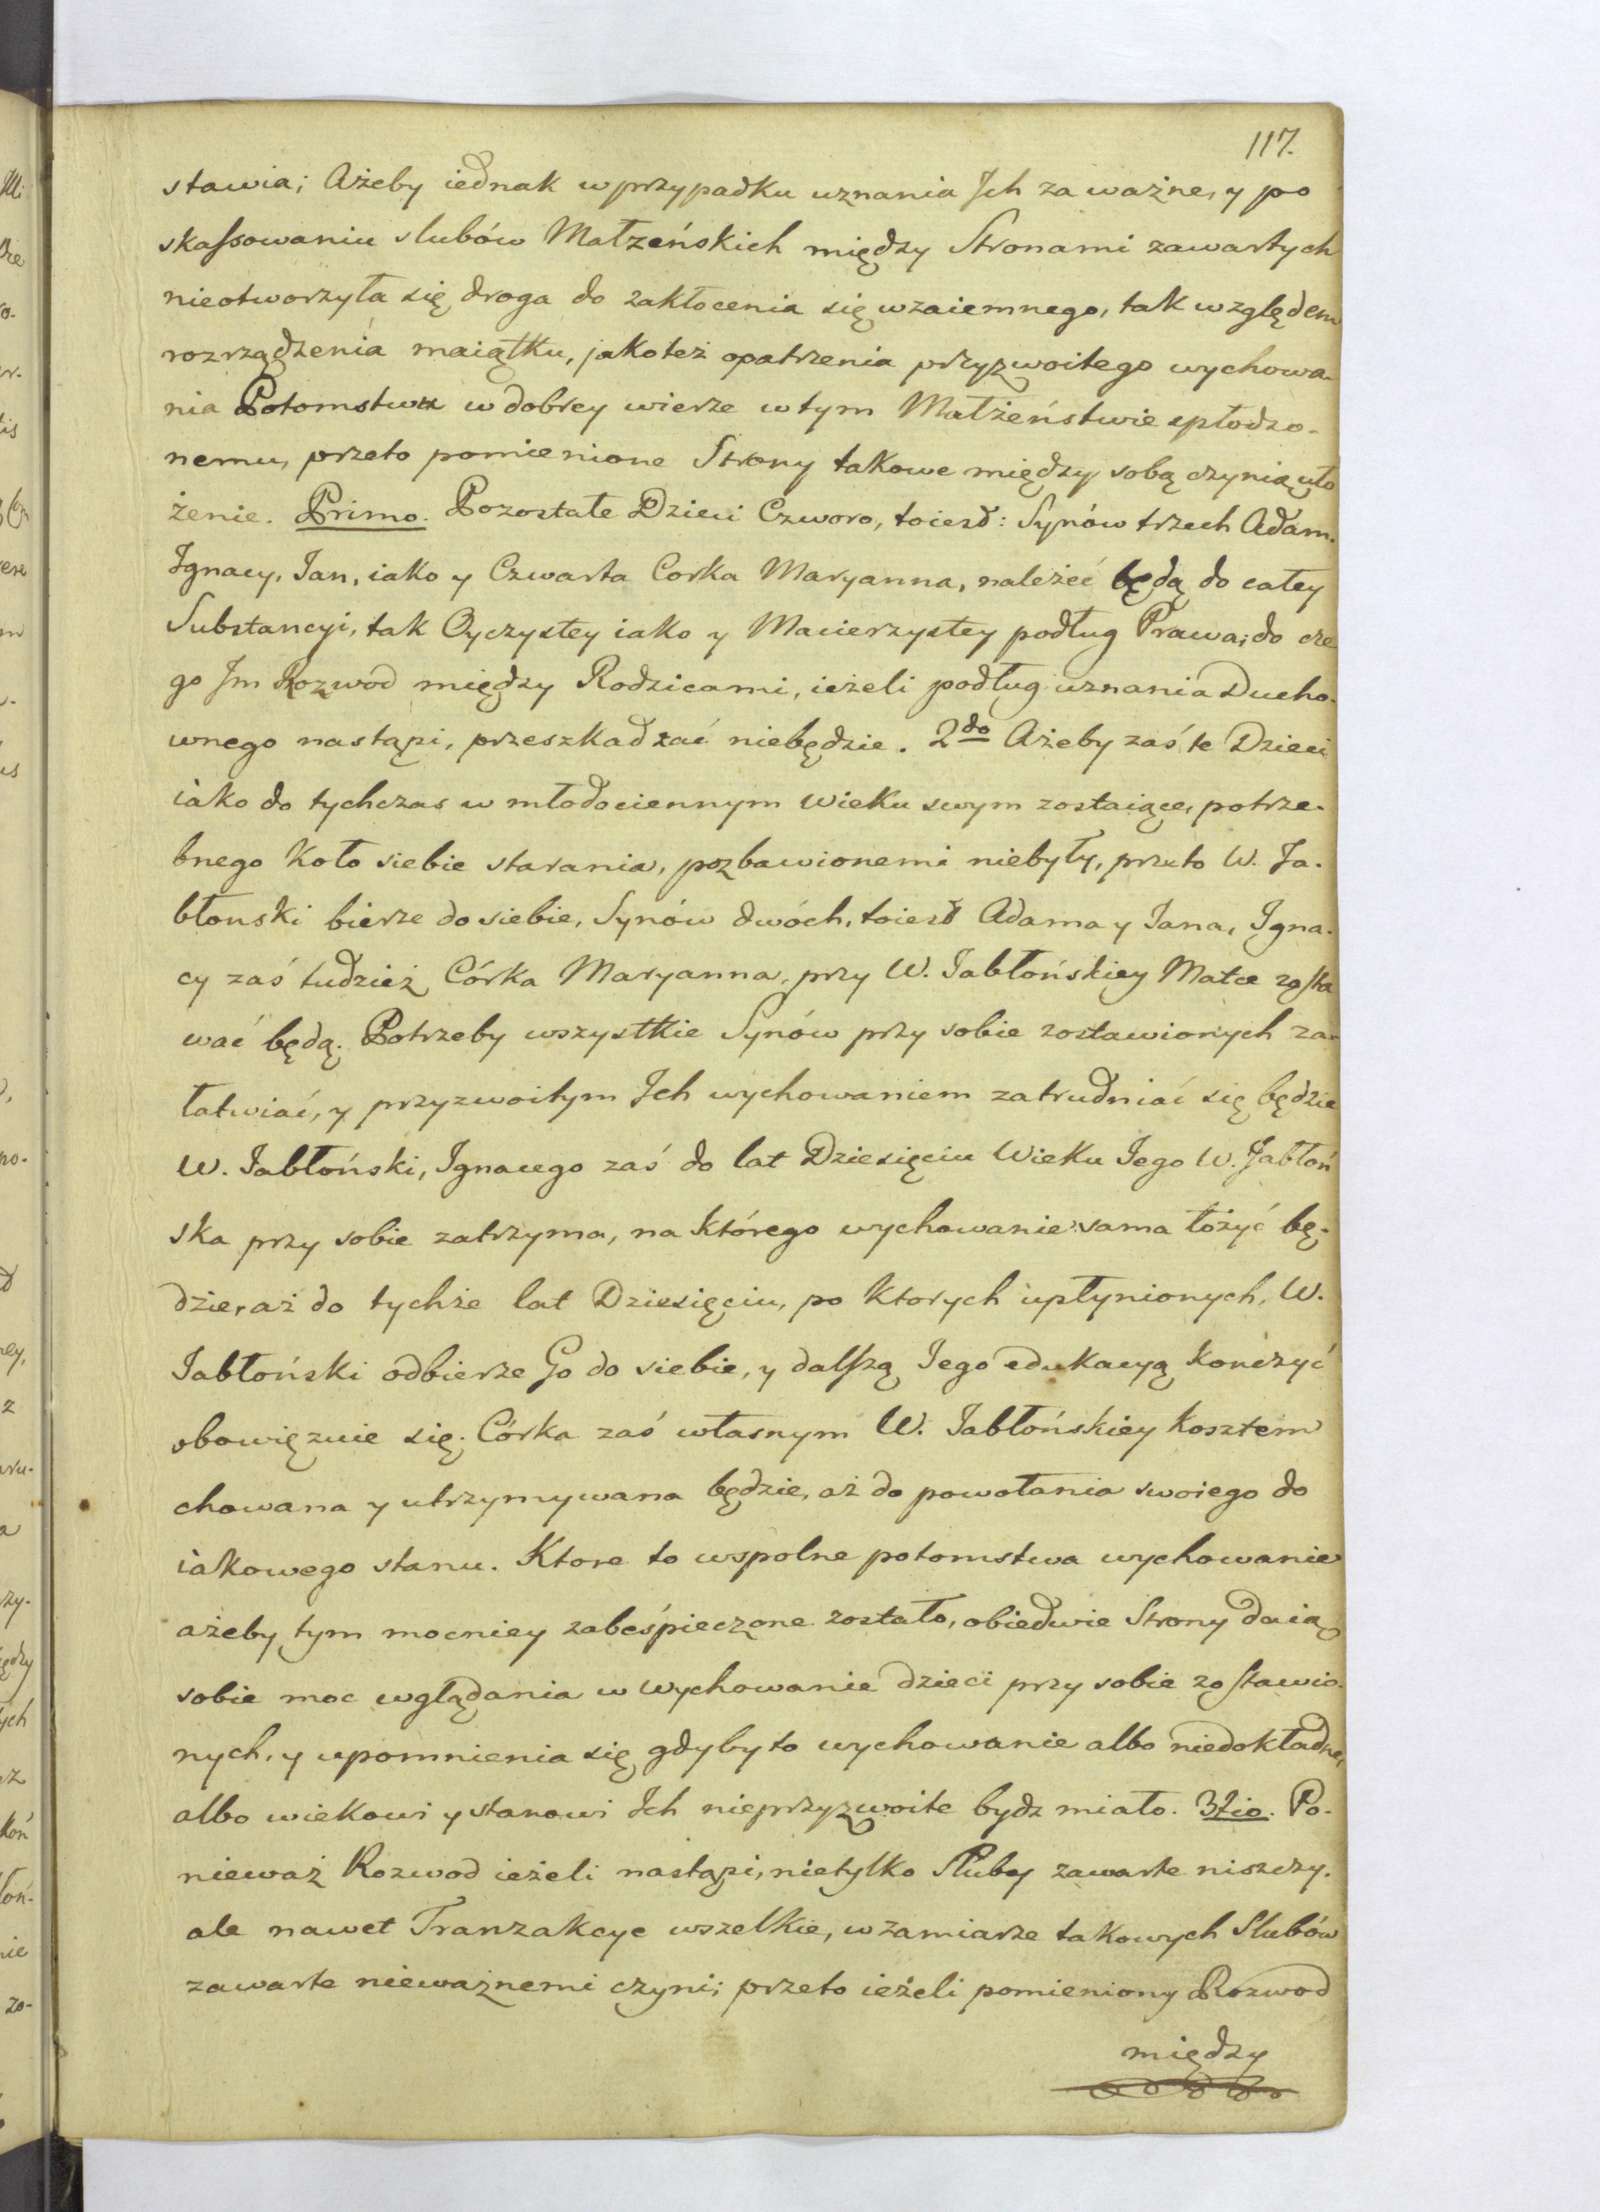 117.
stawia; Ażeby iednak w przypadku uznania Jch za ważne, y po
skassowaniu slubów Małzeńskich między Stronami zawartych
nieotworzyła się droga do zakłocenia się wzaiemnego, tak względem
rozrządzenia maiątku, jakoteż opatrzenia przyzwoitego wychowa-
nia Potomstwu w dobrey wierze w tym Małżeństwie spłodzo-
nemu, przeto pomienione Strony takowe między sobą czynią uło
żenie. Primo. Pozostałe Dzieci Czworo, toiesd: Synów trzech Adam.
Ignacy, Jan, iako y Czwarta Corka Maryanna, należeć będą do całey
Substancyi, tak Oyczystey iako y Macierzystey podług Prawa; do cze
go Jm Rozwod między Rodzicami, ieżeli podług uznania Ducho-
wnego nastąpi, przeszkadzać niebędzie. 2do Ażeby zaś te Dzieci
iako do tychczas w młodociennym wieku swym zostaiące, potrze-
bnego koło siebie starania, pozbawionemi niebyły, przeto W. Ja-
błonski bierze do siebie, Synów dwóch, toiesd Adama y Jana, Igna-
cy zaś tudzież Córka Maryanna, przy W. Jabłońskiey Matce zosta
wać będą. Potrzeby wszystkie Synów przy sobie zostawionych za-
łatwiać, y przyzwoitym Jch wychowaniem zatrudniać się będzie
W. Jabłoński, Ignacego zaś do lat Dziesięciu Wieku Jego W. Jabłoń
ska przy sobie zatrzyma, na którego wychowanie sama łożyć bę-
dzie, aż do tychże lat Dziesięciu, po ktorych upłynionych, W.
Jabłoński odbierze Go do siebie, y dalszą Jego edukacyą kończyć
obowięzuie się. Córka zaś własnym W. Jabłońskiey kosztem
chowana y utrzymywana będzie, aż do powołania swoiego do
iakowego stanu. Ktore to wspolne potomstwa wychowanie
ażeby tym mocniey zabeśpieczone zostało, obiedwie Strony daią
sobie moc wglądania w wychowanie dzieci przy sobie zostawio-
nych, y upomnienia się gdyby to wychowanie albo niedokładne,
albo wiekowi y stanowi Jch nieprzyzwoite bydz miało. 3tio. Po-
nieważ Rozwod ieżeli nastąpi, nietylko Sluby zawarte niszczy.
ale nawet Tranzakcye wszelkie, w zamiarze takowych Slubów
zawarte nieważnemi czyni; przeto ieżeli pomieniony Rozwod
między